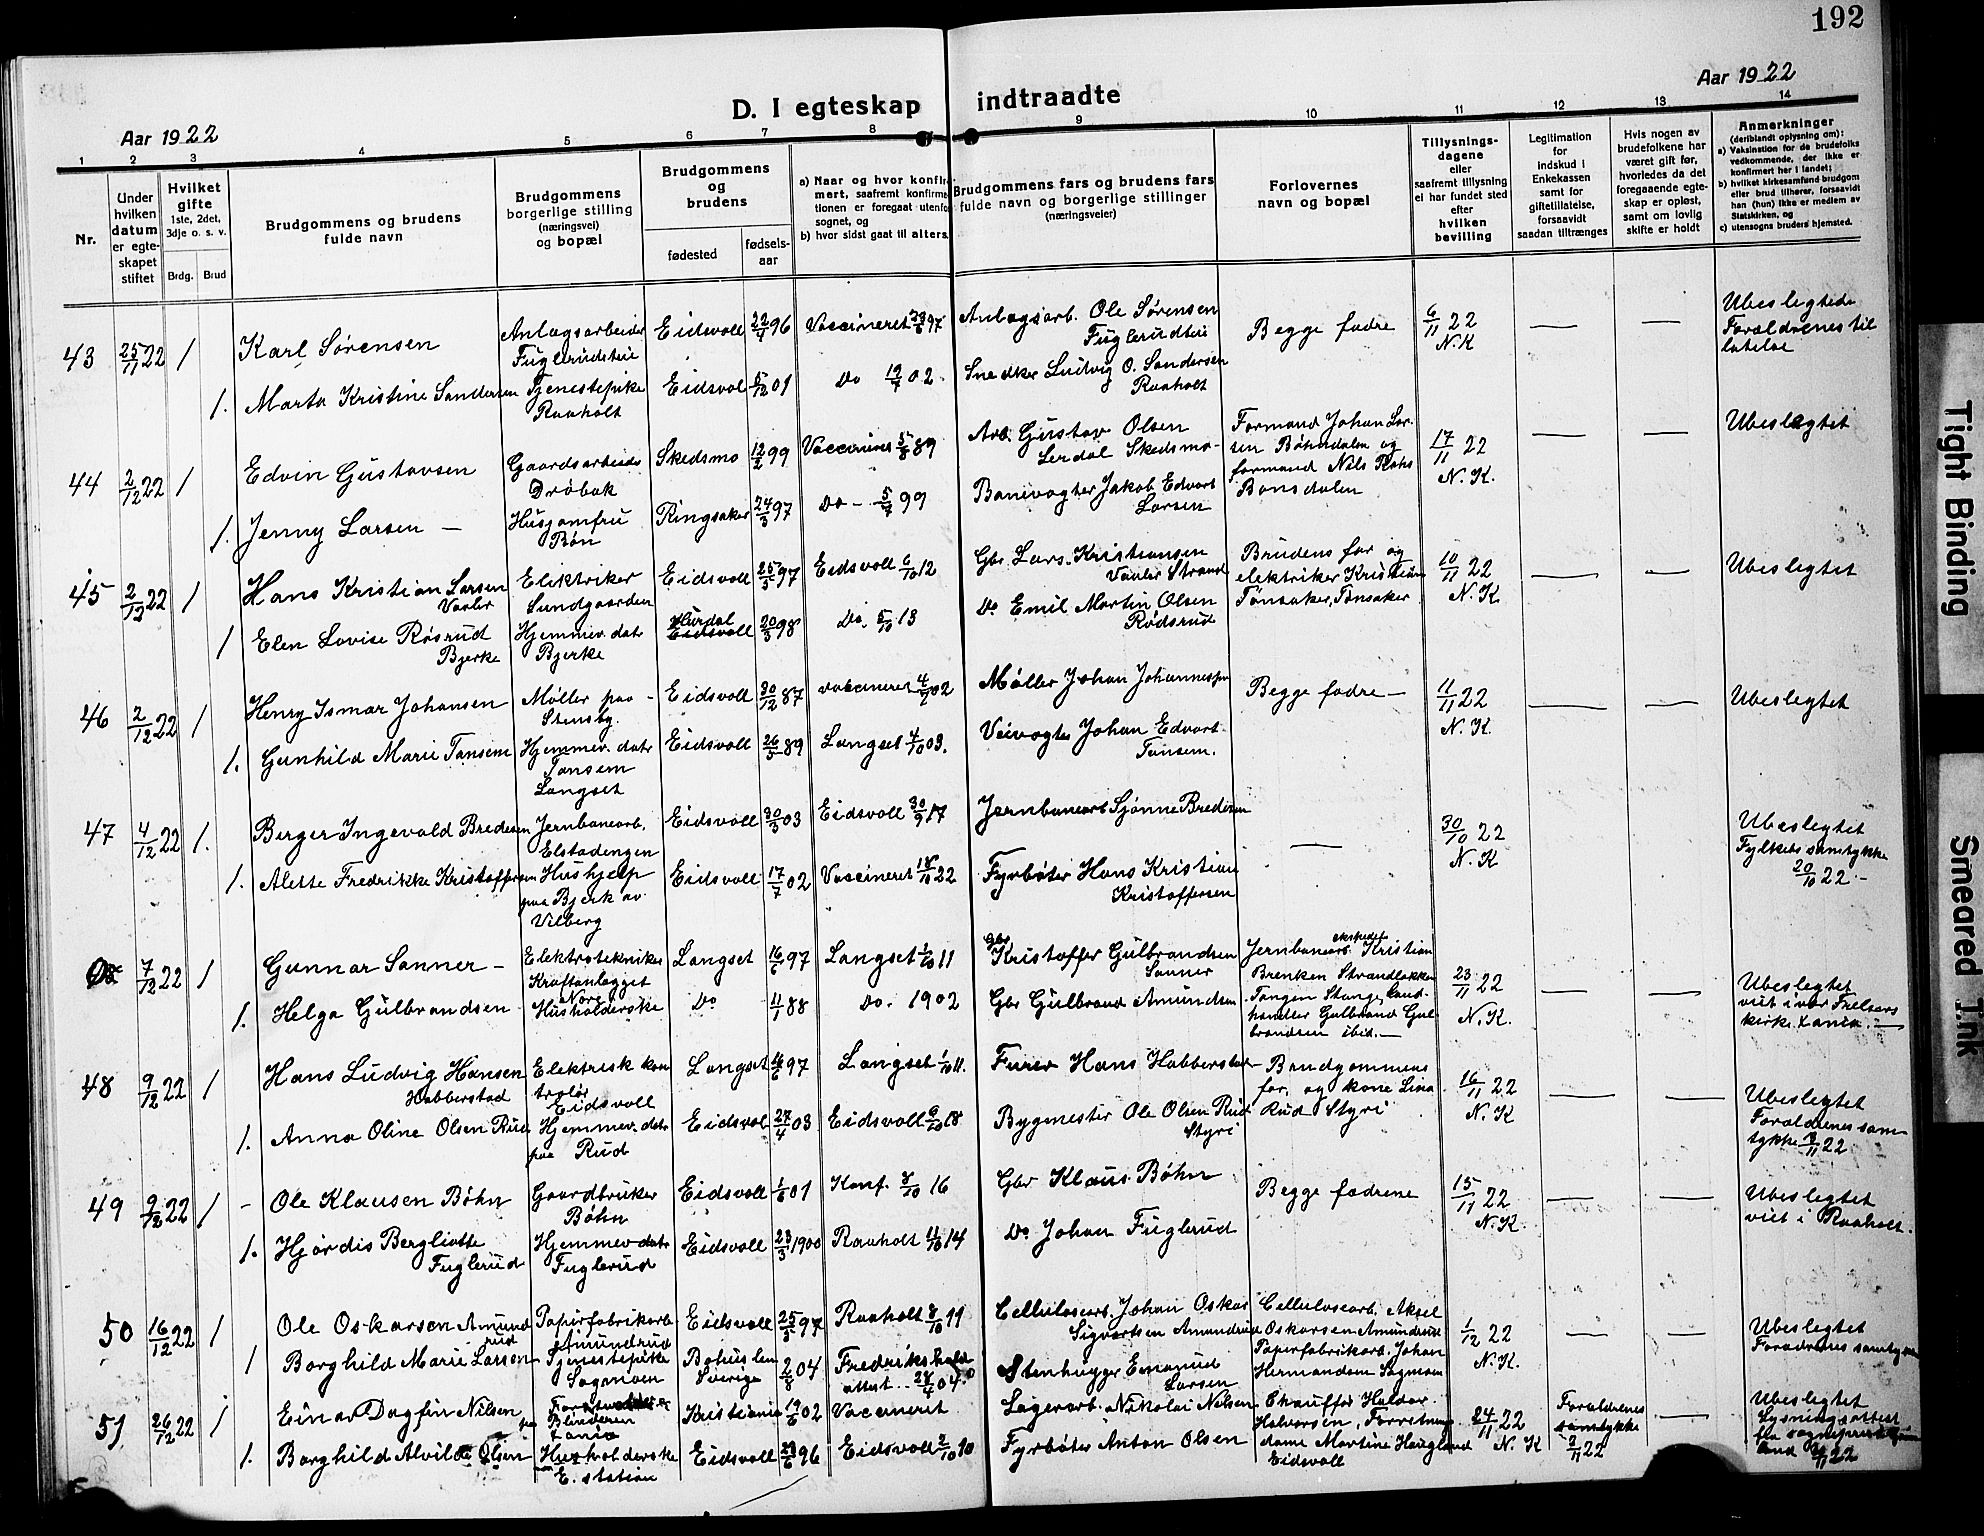 192
D. I egteskap indtraadte
Aar 1922
Aar 1922
1 2 3 4 5 6 7 8 9 10 11 12 13 14
Nr.
Under hvilken datum er egteskapet stiftet
Hvilket gifte 1ste, 2det, 3dje o. s. v.
Brdg. Brud
Brudgommens og brudens fulde navn
Brudgommens borgerlige stilling (næringsvei) og bopæl
Brudgommens og brudens
fødested
fødselsaar
a) Naar og hvor konfirmert, saafremt konfirmationen er foregaat utenfor sognet, og
b) hvor sidst gaat til alters.
Brudgommens fars og brudens fars fulde navn og borgerlige stillinger (næringsveier)
Forlovernes navn og bopæl
Tillysningsdagene eller saafremt tillysning ei har fundet sted efter hvilken bevilling
Legitimation for indskud i Enkekassen samt for giftetillatelse, forsaavidt saadan tiltrænges
Hvis nogen av brudefolkene har været gift før, hvorledes da det foregaaende egteskap er opløst, samt om lovlig skifte er holdt
Anmerkninger (deriblandt oplysning om):
a) Vaksination for de brudefolks vedkommende, der ikke er konfirmert her i landet;
b) hvilket kirkesamfund brudgom eller brud tilhører, forsaavidt han (hun) ikke er medlem av Statskirken, og
c) utensogns bruders hjemsted.
43 25/11 22 1 Karl Sørensen Anlægsarbeider Fuglerudsteie Eidsvoll 22/4 96 Vaccineret 97 Anlægsarb. Ole Sørensen Fuglerudteie Begge fædre 6/11 22 N.K — — Ubeslegtede Forældrenes tilladelse
1. Marta Kristine Sandersen Tjenestepike Raaholt Eidsvol 5/12 01 Do 19/7 02. Snedker Ludvig O. Sandersen Raaholt
44 2/12 22 1 Edvin Gustavsen Gaardsarbeids Drøbak Skedsmo 12/2 99 Vaccineret 5/8 89 Arb. Gustav Olsen Lerdal Skedsmo Formand Johan Larsen Bøhndalen og formand Nils Bonsdalen 17/11 22 N.K. — — Ubeslegtet
1. Jenny Larsen — Husjomfru Bøn Ringsaker 24/3 97 Do — 5/7 99 Banevogter Jakob Edvart Larsen
45 2/12 22 1 Hans Kristian Larsen Vaaler Elektriker Sundgaarden Eidsvoll 25/5 97 Eidsvoll 6/10 12 Gbr. Lars Kristiansen Vaaler Strand Brudens far og elektriker Kristian Tønsaker, Tønsaker 10/11 22 N.K — — Ubeslegtet
1 Elen Lovise Røsrud Bjerke Hjemmev. datr Bjerke Hurdal Eidsvoll 20/3 98 Do. 5/10 13 Do Emil Martin Olsen Rødsrud
46 2/12 22 1 Henry Ismar Johansen Møller paa Stensby. Eidsvoll 30/12 87 vaccineret 02 Møller Johan Johannessen Begge fædre — 11/11 22 N.K. — — Ubeslegtet
1. Gunhild Marie Tansem Hjemmev. datr Tansem Langset Eidsvoll 26/5 89 Langset 4/10 03. Veivogter Johan Edvart Tansem.
47 4/12 22 1. Berger Ingevald Bredesen Jernbanearb. Elstadengen Eidsvoll 30/3 03 Eidsvoll 30/9 17 Jernbanearb Sjønne Bredesen — 30/10 22 N.K — — Ubeslegtet Fylkets samtykke 20/10 22 —
1. Alette Fredrikke Kristoffersen Hushjelp paa Bjerk av Vilberg Eidsvoll 17/7 02 Vaccineret 18/10 22 Fyrbøter Hans Kristian Kristoffersen
7/12 22 1 Gunnar Sanner — Elektrotekniker Kraftanlægget Nore Langset 16/6 97 Langset 1/10 11 Gbr Kristoffer Gulbrandsen Sanner Jernbaneekspeditør Kristian Brenken Strandløkken Tangen Stange, Landhandler Gulbrand Gulbrandsen ibid. — 23/11 22 N.K. — — Ubeslegtet viet i vor Frelsers kirke Xania. —
1. Helga Gulbrandsen Husholderske Do 4/1 88 Do. 1902 Gbr Gulbrand Amundsen
48 9/12 22 1 Hans Ludvig Hansen Habberstad Elektrisk kontrolør Eidsvoll Langset 16/6 97 Langset 1/10 11. Furer Hans Habberstad Brudgommens far, og kone Lina Rud Styri 16/11 22 N.K — — Ubeslegtet Forældrenes samtykke 22
1. Anna Oline Olsen Rud Hjemmev. datr paa Rud Eidsvol 27/4 03 Eidsvoll 6/10 18 Bygmester Ole Olsen Rud Styri
49 9/12 22 1 — Ole Klausen Bøhn Gaardbruker Bøhn Eidsvoll 1/6 01 Konf. 8/10 16 Gbr Klaus Bøhn Begge fædrene 15/11 22 N.K — — Ubeslegtet viet i Raaholt.
1. Hjørdis Bergliotte Fuglerud Hjemmev datr Fuglerud Eidsvoll 23/3 1900 Raaholt 11/10 14 Do Johan Fuglerud
50 16/12 22 1 Ole Oskarsen Amundrud Papirfabrikarb Amundrud Eidsvoll 25/5 97 Raaholt 8/10 11 Cellulosearb. Johan Oskar Sigvartsen Amundrud Cellulosearb. Aksel Oskarsen Amundrud Papirfabrikarb. Johan Hermandsen Sagmoen 1/12 22 N.K. — — Ubeslegtet Foreldrenes samtykke
1 Borghild Marie Larsen Tjenestepike Sagmoen Bohuslen Sverige 2/8 04 Fredrikshald attest 28/4 04. Stenhugger Emanuel Larsen
51 26/12 22 1 Einar Dagfin Nilsen Blinderen Xania Kristiania 19/6 02 Vaccineret Lagerarb. Nikolai Nilsen Chauffør Haldor Halvorsen Forretningsdame Martine Haugland Eidsvoll 24/11 22 N.K Forældrenes samtykke 22 Ubeslegtet Lysningsattest fra sogneprest 22
1. Borghild Alvilde Olsen Husholderske E. station Eidsvoll 96 Eidsvoll 2/10 10 Fyrbøter Anton Olsen
Tight Binding
Smeared Ink